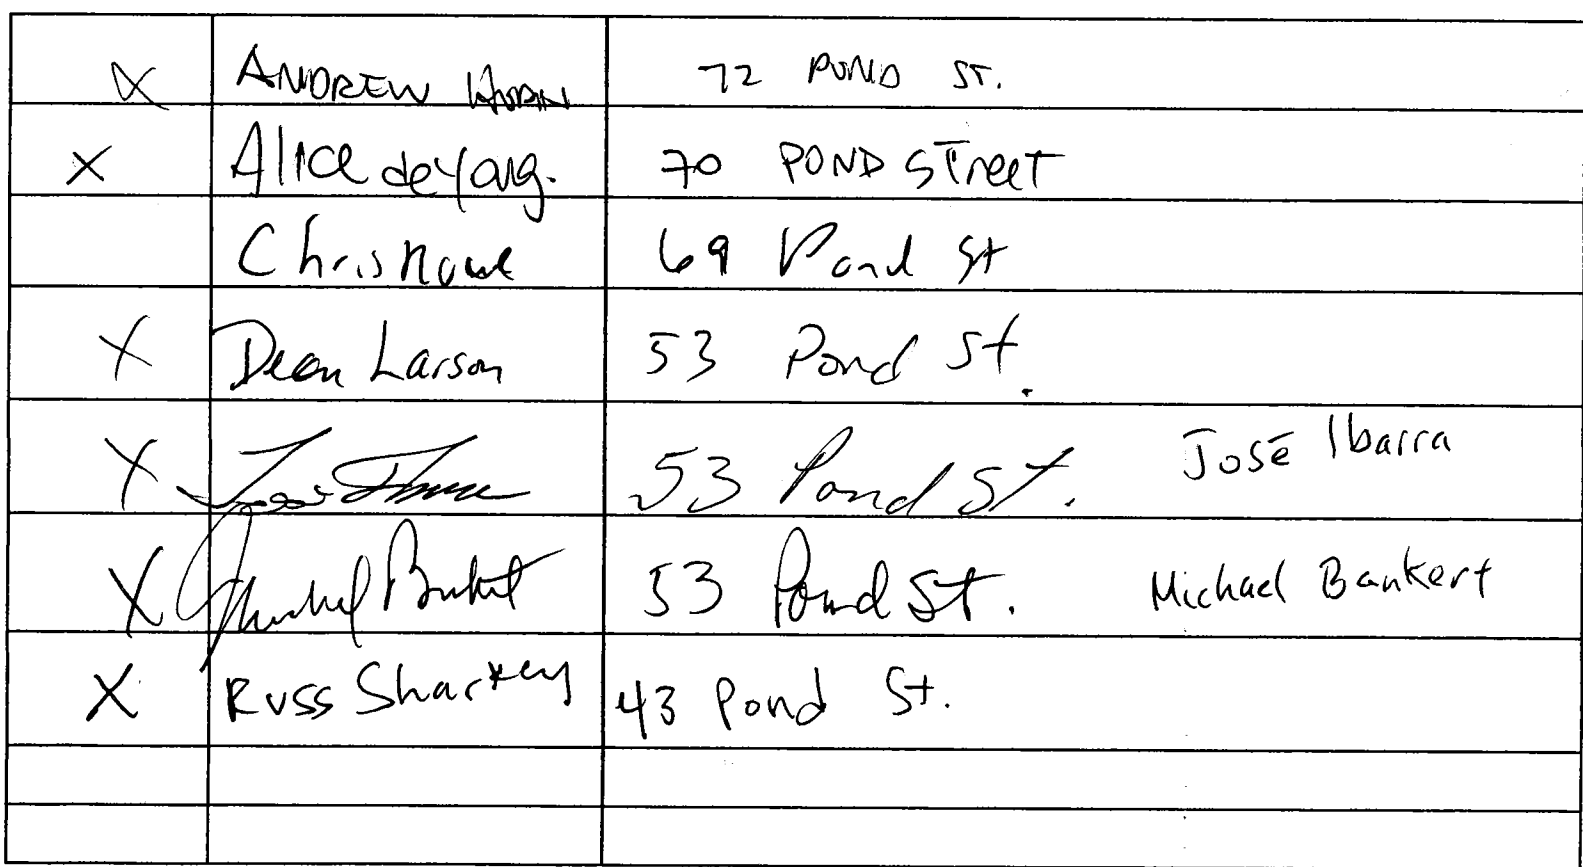 X ANDREW 72 POND ST.
X Alice deYoung. 70 POND STreet
Chris 69 Pond St
X Dean Larson 53 Pond St.
X 53 Pond St. José Ibarra
X Michael Bankert 53 Pond St. Michael Bankert
X Russ Sharkey 43 Pond St.